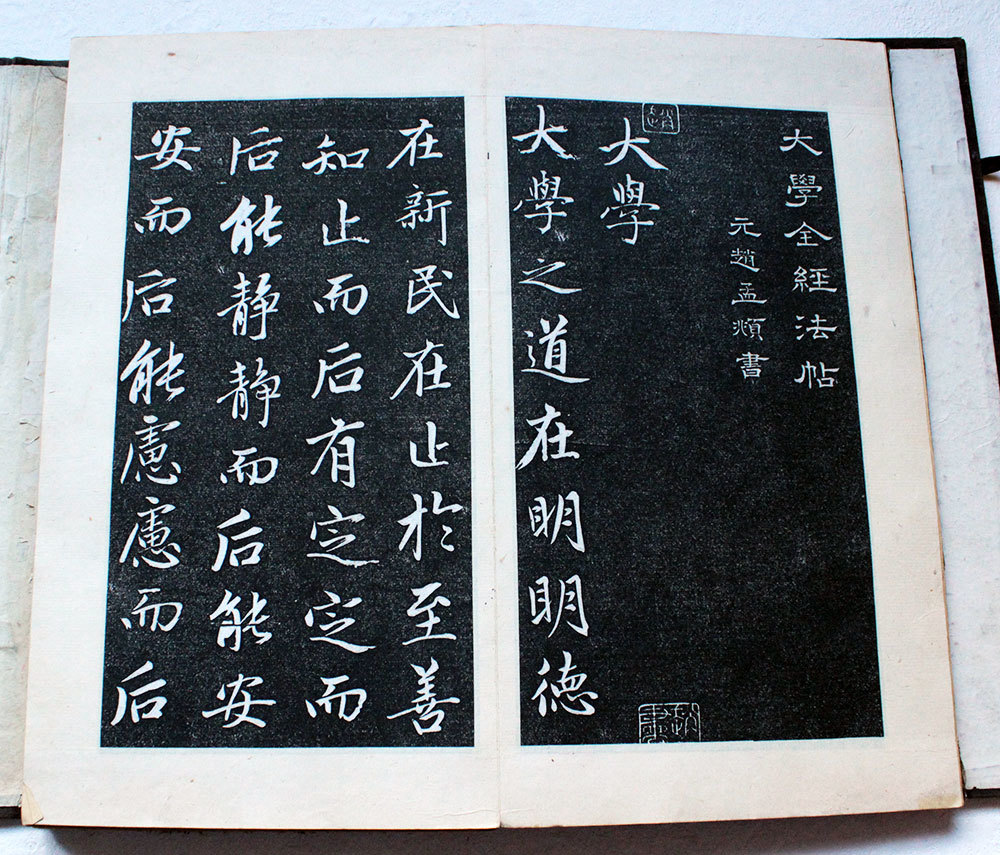 大學全經法帖
元趙孟頫書
大學
大學之道在明明德
在新民在止於至善
知止而后有定定而
后能静静而后能安
安而后能慮慮而后